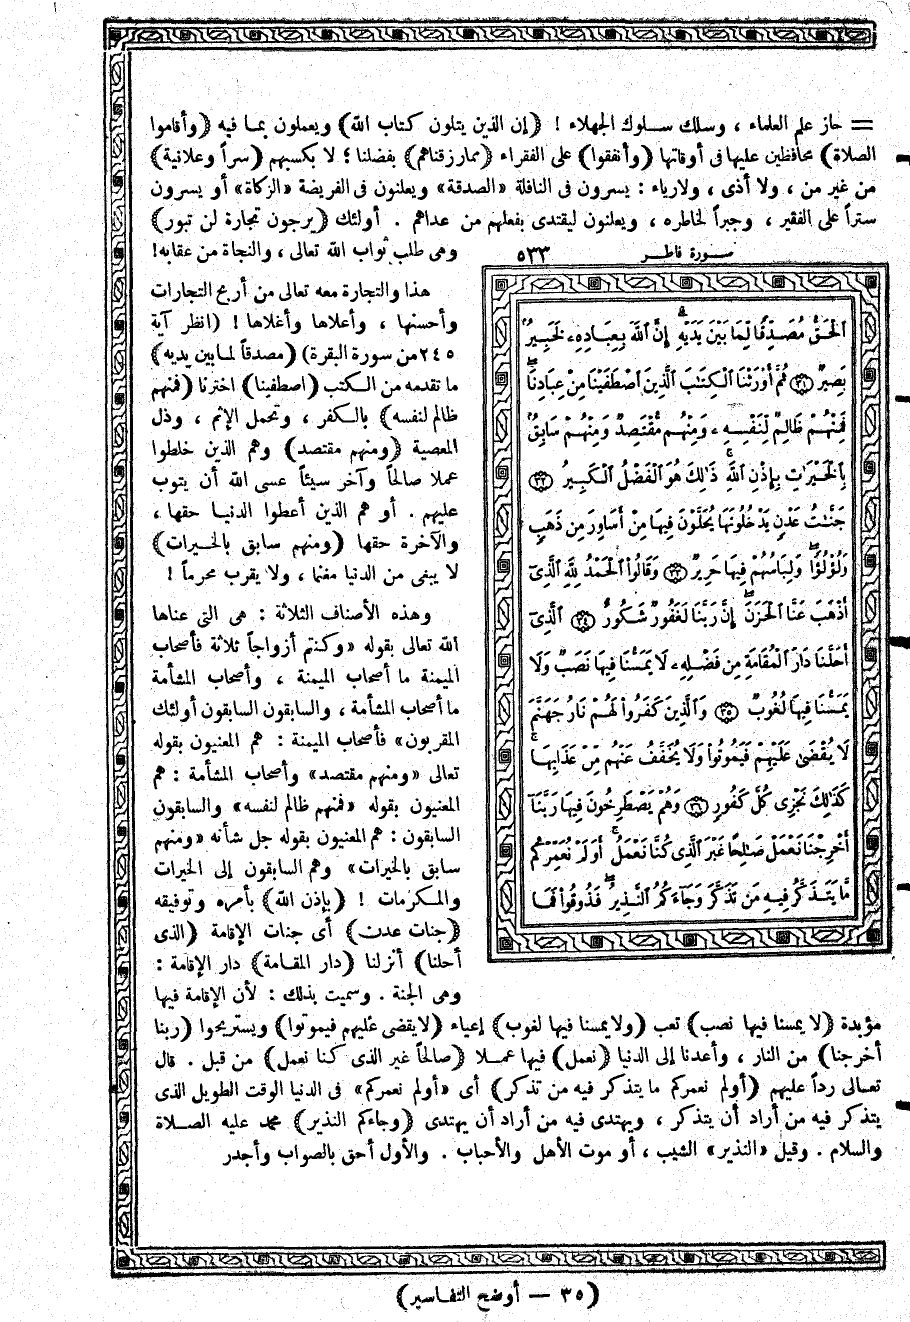 = حاز علم العلماء ، وسلك سلوك الجهلاء ! (إن الذين يتلون كتاب الله) ويعملون بما فيه (وأقاموا
الصلاة) محافظين عليها فى أوقاتها (وأنفقوا) على الفقراء (مما رزقناهم) بفضلنا ؛ لا بكسبهم (سراً وعلانية)
من غير من ، ولا أذى ، ولا رياء : يسرون فى النافلة «الصدقة» ويعلنون فى الفريضة «الزكاة» أو يسرون
ستراً على الفقير ، وجبراً لخاطره ، ويعلنون ليقتدى بفعلهم من عداهم . أولئك (يرجون تجارة لن تبور)
وهى طلب ثواب الله تعالى ، والنجاة من عقابه !
سورة فاطر ٥٣٣
الْحَقُّ مُصَدِّقًا لِمَا بَيْنَ يَدَيْهِ إِنَّ اللَّهَ بِعِبَادِهِ لَخَبِيرٌ
بَصِيرٌ ٣١ ثُمَّ أَوْرَثْنَا الْكِتَٰبَ الَّذِينَ اصْطَفَيْنَا مِنْ عِبَادِنَا
فَمِنْهُمْ ظَالِمٌ لِنَفْسِهِ وَمِنْهُم مُّقْتَصِدٌ وَمِنْهُمْ سَابِقٌ
بِالْخَيْرَٰتِ بِإِذْنِ اللَّهِ ذَٰلِكَ هُوَ الْفَضْلُ الْكَبِيرُ ٣٢
جَنَّٰتُ عَدْنٍ يَدْخُلُونَهَا يُحَلَّوْنَ فِيهَا مِنْ أَسَاوِرَ مِن ذَهَبٍ
وَلُؤْلُؤًا وَلِبَاسُهُمْ فِيهَا حَرِيرٌ ٣٣ وَقَالُوا الْحَمْدُ لِلَّهِ الَّذِىٓ
أَذْهَبَ عَنَّا الْحَزَنَ إِنَّ رَبَّنَا لَغَفُورٌ شَكُورٌ ٣٤ الَّذِىٓ
أَحَلَّنَا دَارَ الْمُقَامَةِ مِن فَضْلِهِ لَا يَمَسُّنَا فِيهَا نَصَبٌ وَلَا
يَمَسُّنَا فِيهَا لُغُوبٌ ٣٥ وَالَّذِينَ كَفَرُوا لَهُمْ نَارُ جَهَنَّمَ
لَا يُقْضَىٰ عَلَيْهِمْ فَيَمُوتُوا وَلَا يُخَفَّفُ عَنْهُم مِّنْ عَذَابِهَا
كَذَٰلِكَ نَجْزِى كُلَّ كَفُورٍ ٣٦ وَهُمْ يَصْطَرِخُونَ فِيهَا رَبَّنَا
أَخْرِجْنَا نَعْمَلْ صَٰلِحًا غَيْرَ الَّذِى كُنَّا نَعْمَلُ أَوَلَمْ نُعَمِّرْكُم
مَّا يَتَذَكَّرُ فِيهِ مَن تَذَكَّرَ وَجَآءَكُمُ النَّذِيرُ فَذُوقُوا فَمَا
هذا والتجارة معه تعالى من أربح التجارات
وأحسنها ، وأعلاها وأغلاها ! (انظر آية
٢٤٥ من سورة البقرة) (مصدقاً لما بين يديه)
ما تقدمه من الكتب (اصطفينا) اخترنا (فمنهم
ظالم لنفسه) بالكفر ، وتحمل الإثم ، وذل
المعصية (ومنهم مقتصد) وهم الذين خلطوا
عملا صالحاً وآخر سيئاً عسى الله أن يتوب
عليهم . أو هم الذين أعطوا الدنيا حقها ،
والآخرة حقها (ومنهم سابق بالخيرات)
لا يبغى من الدنيا مغنما ، ولا يقرب محرماً !
وهذه الأصناف الثلاثة : هى التى عناها
الله تعالى بقوله «وكنتم أزواجاً ثلاثة فأصحاب
الميمنة ما أصحاب الميمنة ، وأصحاب المشأمة
ما أصحاب المشأمة ، والسابقون السابقون أولئك
المقربون» فأصحاب الميمنة : هم المعنيون بقوله
تعالى «ومنهم مقتصد» وأصحاب المشأمة : هم
المعنيون بقوله «فمنهم ظالم لنفسه» والسابقون
السابقون : هم المعنيون بقوله جل شأنه «ومنهم
سابق بالخيرات» وهم السابقون إلى الخيرات
والمكرمات ! (بإذن الله) بأمره وتوفيقه
(جنات عدن) أى جنات الإقامة (الذى
أحلنا) أنزلنا (دار المقامة) دار الإقامة :
وهى الجنة . وسميت بذلك : لأن الإقامة فيها
مؤبدة (لا يمسنا فيها نصب) تعب (ولا يمسنا فيها لغوب) إعياء (لا يقضى عليهم فيموتوا) ويستريحوا (ربنا
أخرجنا) من النار ، وأعدنا إلى الدنيا (نعمل) فيها عملا (صالحاً غير الذى كنا نعمل) من قبل . قال
تعالى رداً عليهم (أولم نعمركم ما يتذكر فيه من تذكر) أى «أولم نعمركم» فى الدنيا الوقت الطويل الذى
يتذكر فيه من أراد أن يتذكر ، ويهتدى فيه من أراد أن يهتدى (وجاءكم النذير) محمد عليه الصلاة
والسلام . وقيل «النذير» الشيب ، أو موت الأهل والأحباب . والأول أحق بالصواب وأجدر
(٣٥ — أوضح التفاسير)